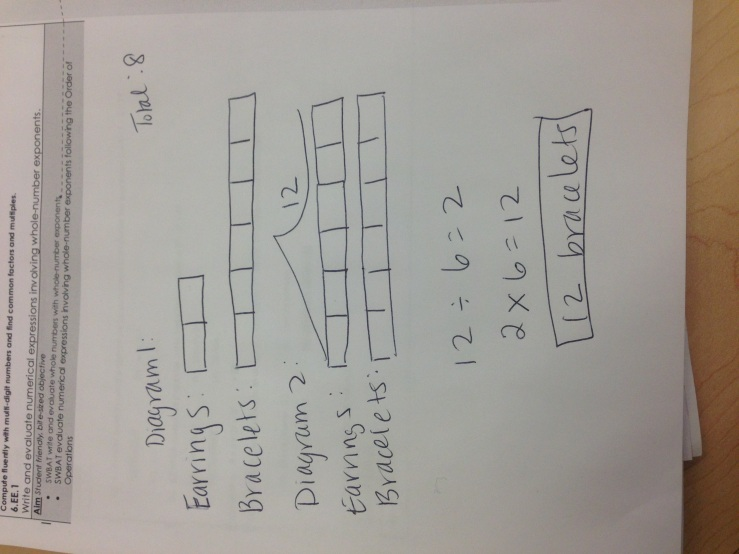 Compute fluently with multi-digit numbers and find common factors and multiples.
6.EE.1
Write and evaluate numerical expressions involving whole-number exponents.
Aim Student friendly, bite-sized objective
• SWBAT write and evaluate whole numbers with whole-number exponents
• SWBAT evaluate numerical expressions involving whole-number exponents following the Order of
Operations
Total: 8
Diagram 1:
Earrings:
Bracelets:
Diagram 2:
12
Earrings:
Bracelets:
12 ÷ 6 = 2
2 x 6 = 12
12 bracelets